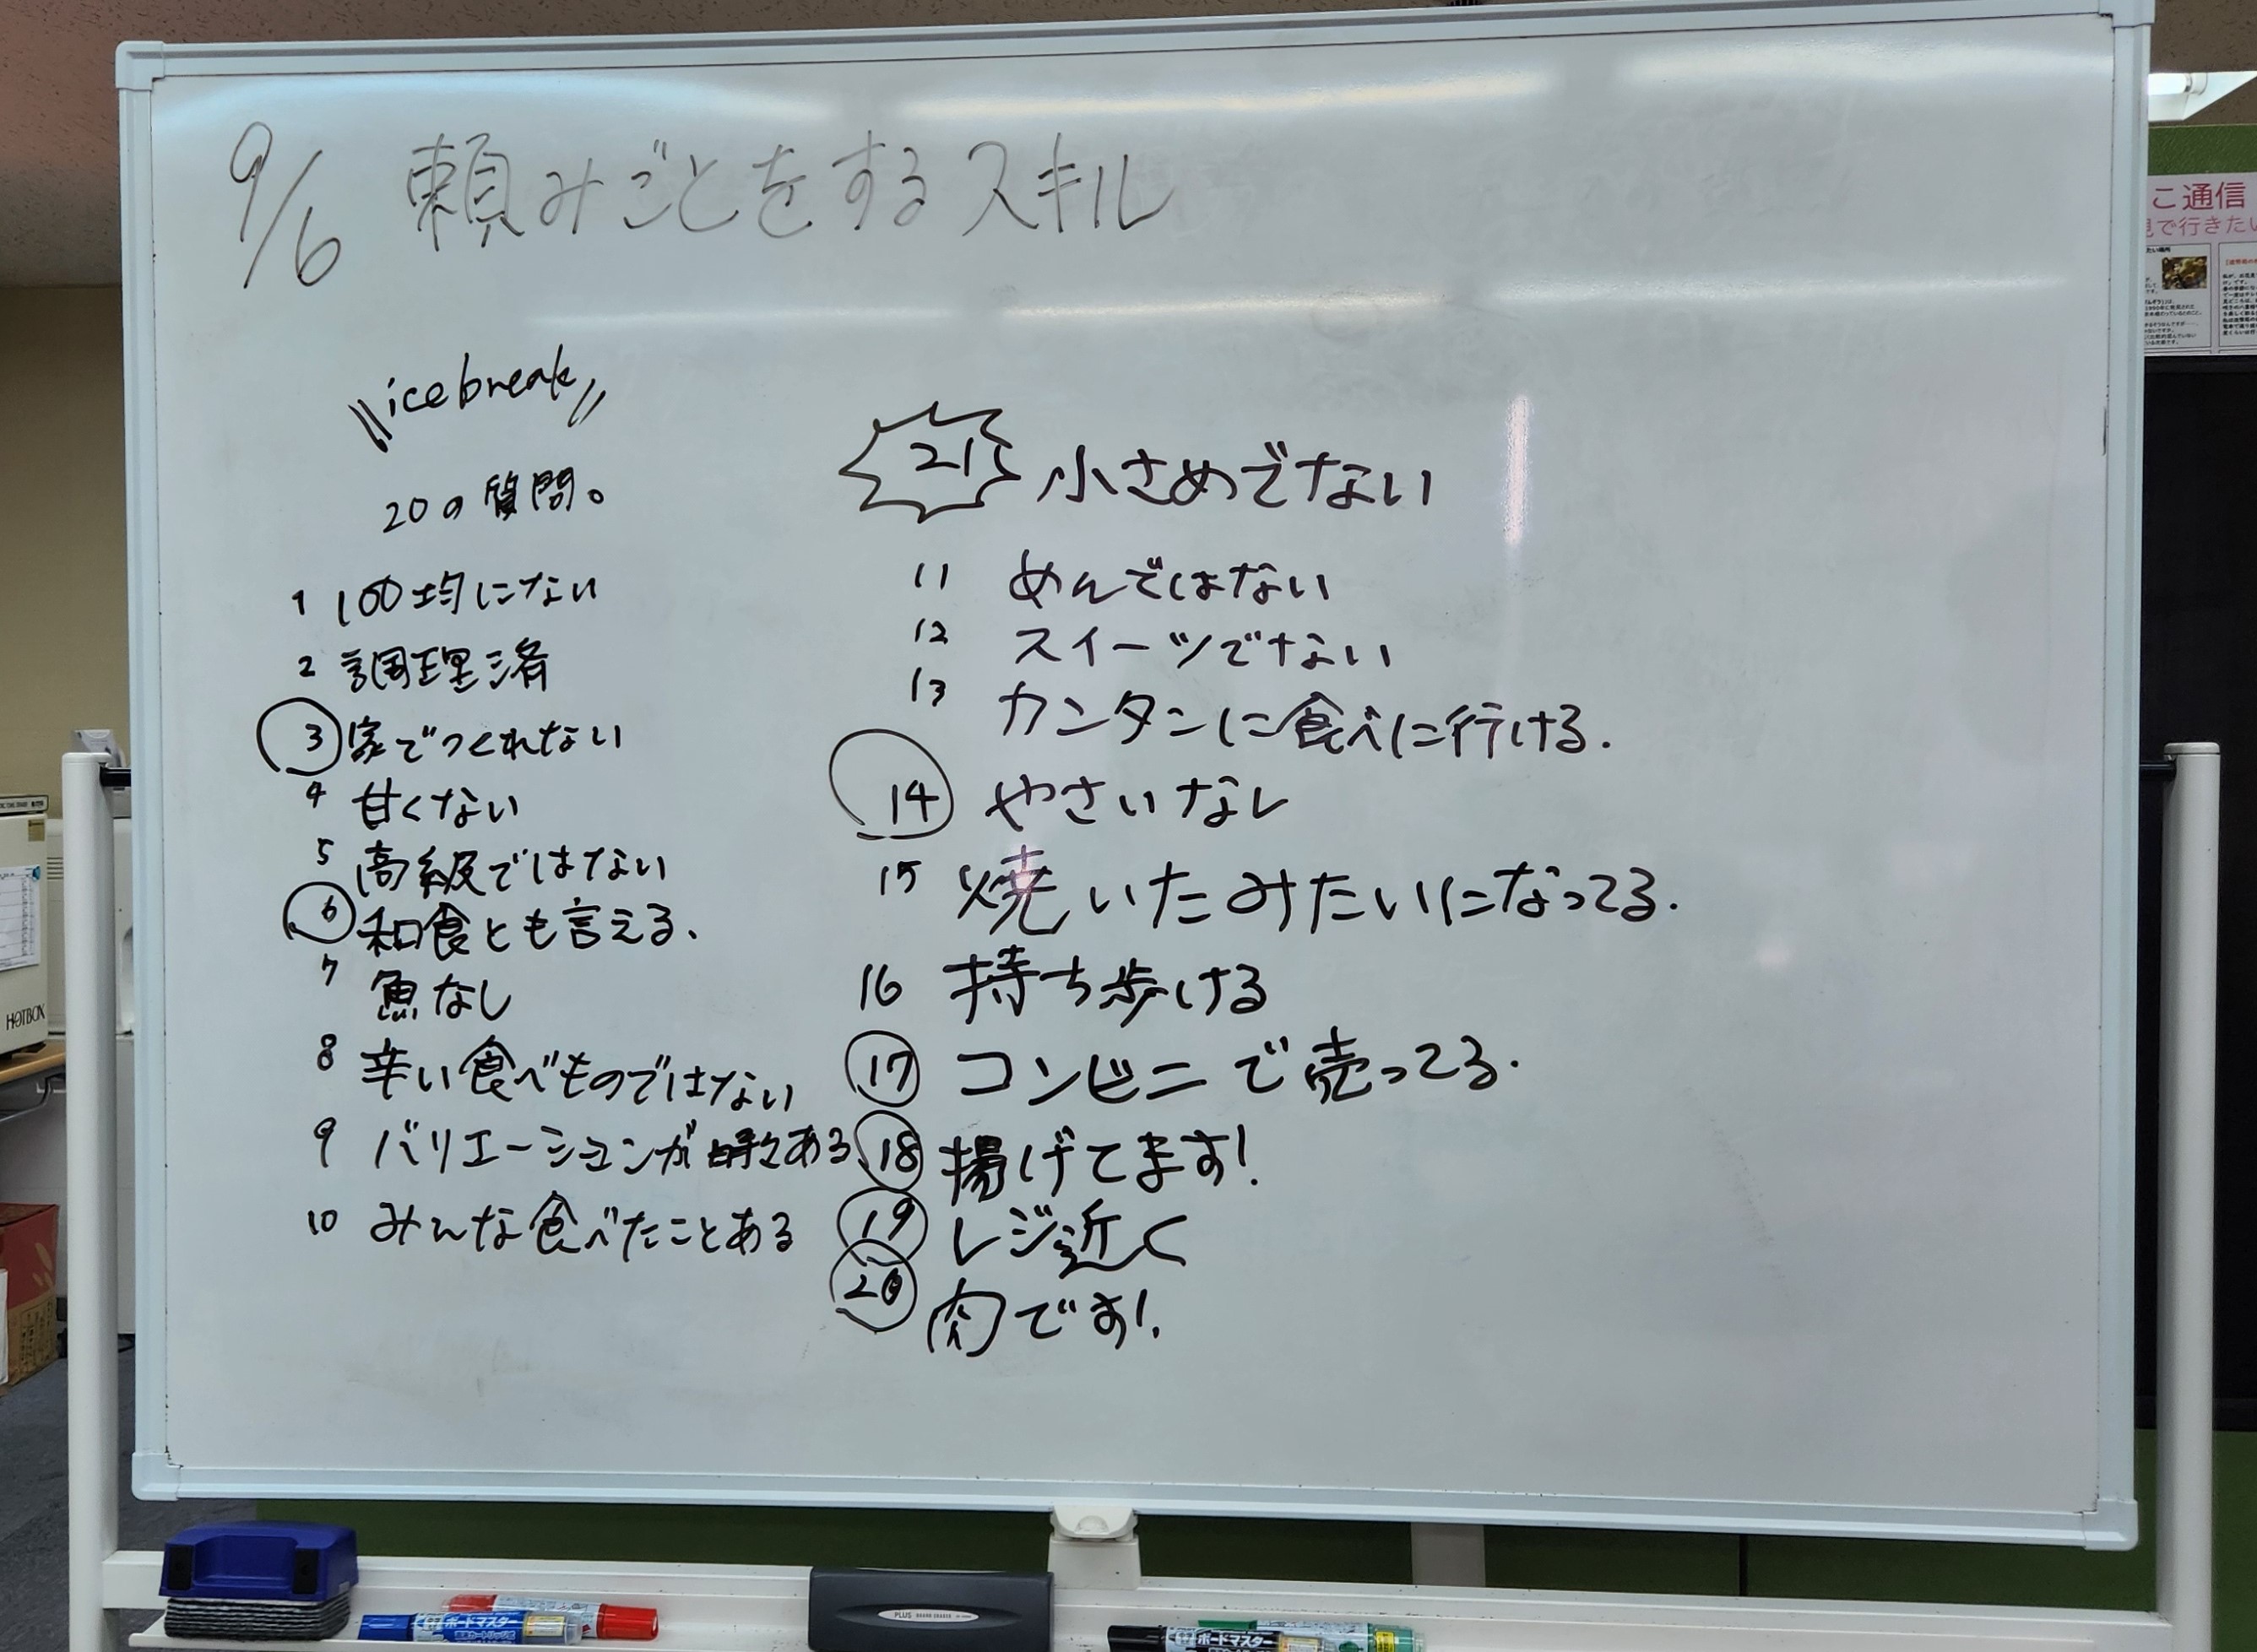 9/6 頼みごとをするスキル
icebreak
20の質問。
1 100均にない
2 調理済
3 家でつくれない
4 甘くない
5 高級ではない
6 和食とも言える、
7 魚なし
8 辛い食べものではない
9 バリエーションが時々ある
10 みんな食べたことある
21 小さめでない
11 めんではない
12 スイーツでない
13 カンタンに食べに行ける.
14 やさいなし
15 焼いたみたいになってる.
16 持ち歩ける
17 コンビニで売ってる.
18 揚げてます!
19 レジ近く
20 肉です!
こ通信
で行きたい
HOTBOX
PLUS
ボードマスター
ボードマスター